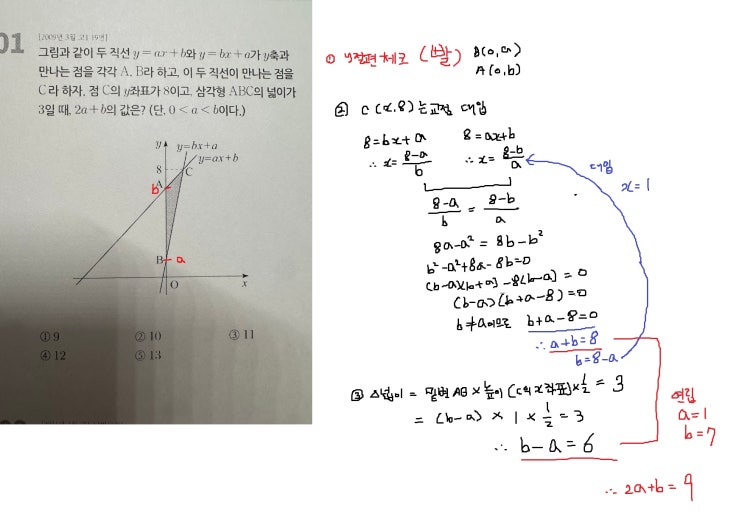 01
[2009년 3월 고1 19번]
그림과 같이 두 직선 y=ax+b와 y=bx+a가 y축과
만나는 점을 각각 A, B라 하고, 이 두 직선이 만나는 점을
C라 하자. 점 C의 y좌표가 8이고, 삼각형 ABC의 넓이가
3일 때, 2a+b의 값은? (단, 0<a<b이다.)
y
y=bx+a
y=ax+b
8
C
A
b
B
a
O
x
① 9 ② 10 ③ 11
④ 12 ⑤ 13
① y절편 체크 (빨) B(0,a)
A(0,b)
② C(x,8)는 교점 대입
8=bx+a 8=ax+b
∴ x=(8-a)/b ∴ x=(8-b)/a
대입
x=1
(8-a)/b = (8-b)/a
8a-a²=8b-b²
b²-a²+8a-8b=0
(b-a)(b+a)-8(b-a)=0
(b-a)(b+a-8)=0
b≠a이므로 b+a-8=0
∴ a+b=8
b=8-a
③ △넓이 = 밑변 AB × 높이(C의 x좌표)×1/2 = 3
= (b-a) × 1 × 1/2 = 3
∴ b-a=6
연립
a=1
b=7
∴ 2a+b=9